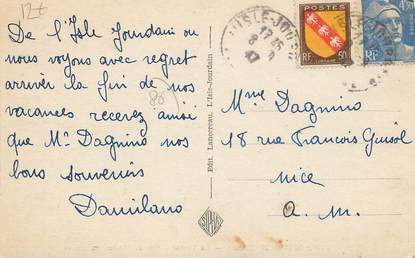 12€
De l'Isle Jourdain ou
nous voyons avec regret
arriver la fin de nos
vacances recevez ainsi
que Mr Dagnino nos
bons souvenirs
Damilano
(86)
Edit. Lancereau, L'Isle-Jourdain
L'ISLE-JOURDAIN
17 45
8
47
RF
50
RF
Mme Dagnino
18 rue François Guisol
Nice
A. M.